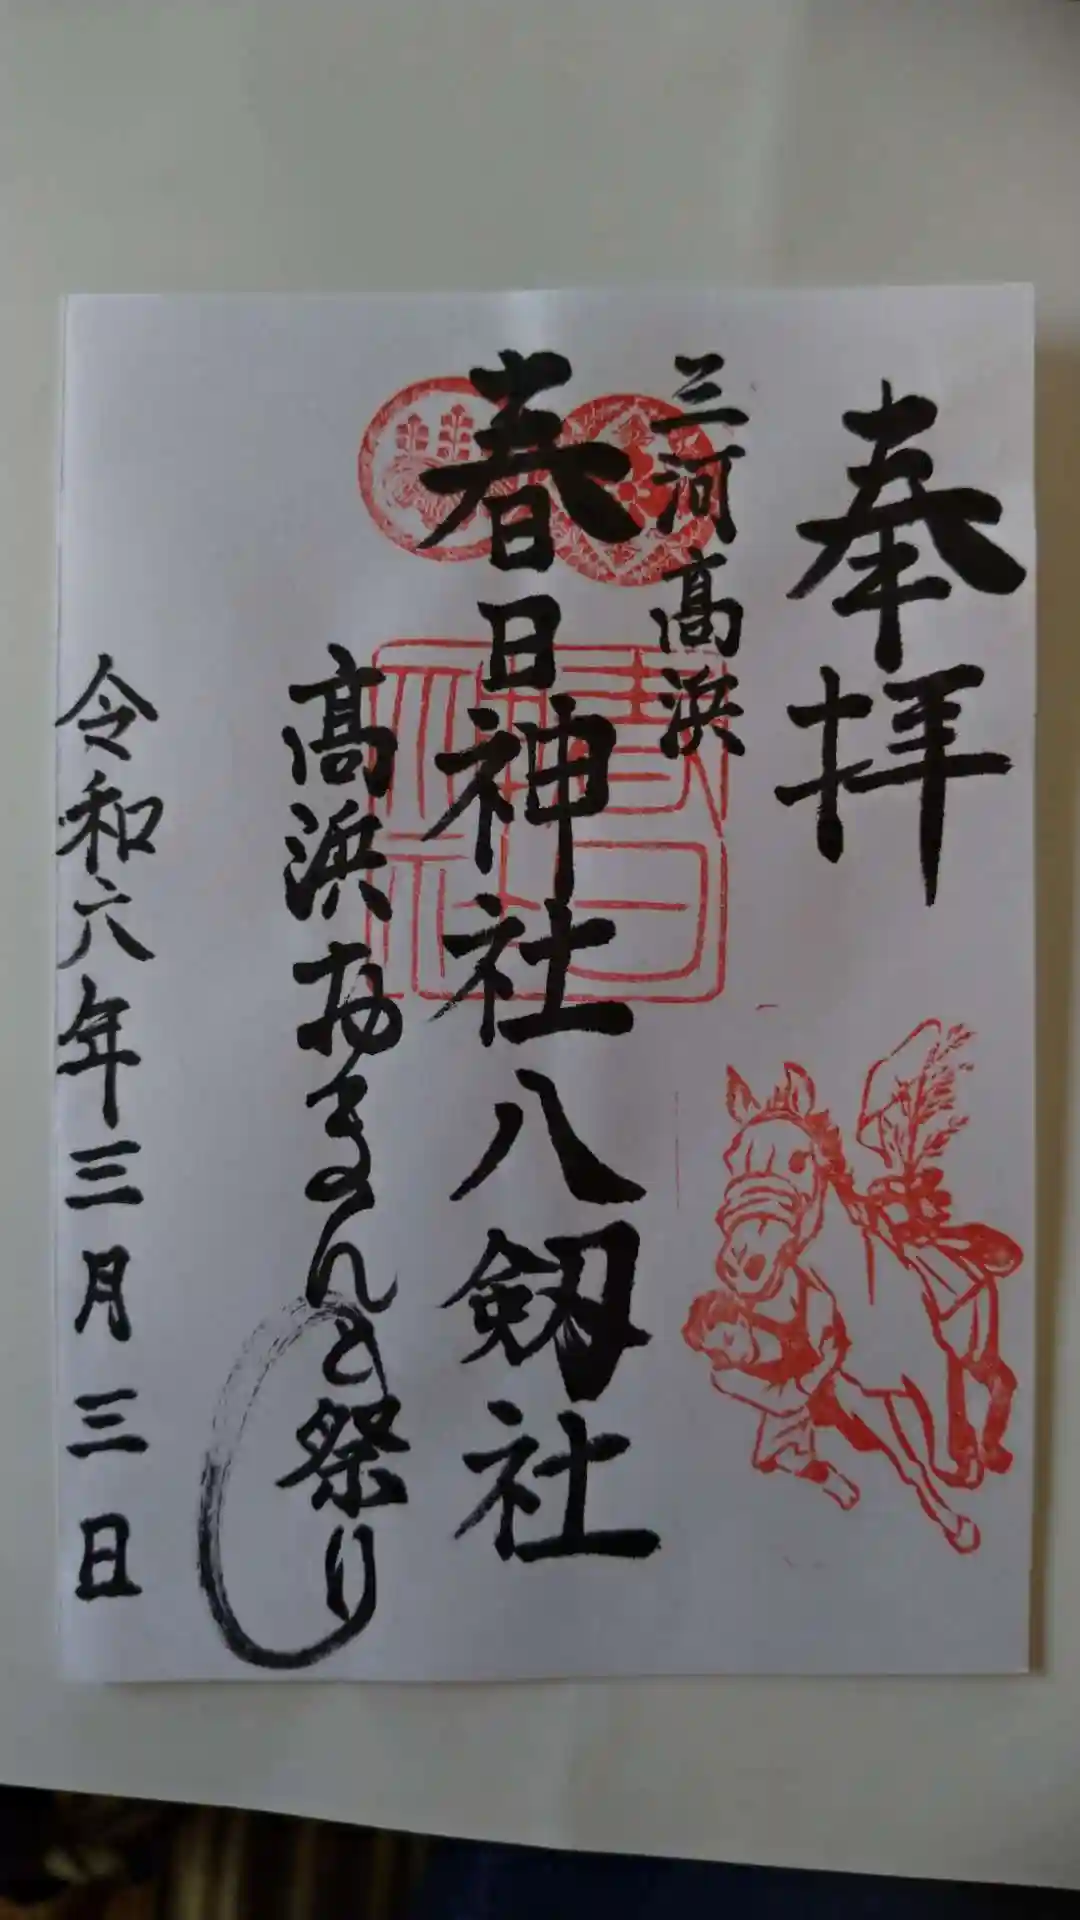 奉拝
三河高浜
春日神社八剱社
高浜おまんと祭り
令和六年三月三日
春日神社